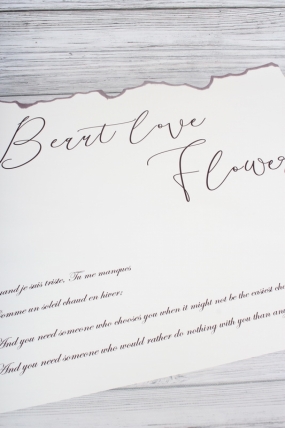 Beaut love
Flower
uand je suis triste. Tu me manques
omme un soleil chaud en hiver;
And you need someone who chooses you when it might not be the easiest
And you need someone who would rather do nothing with you than